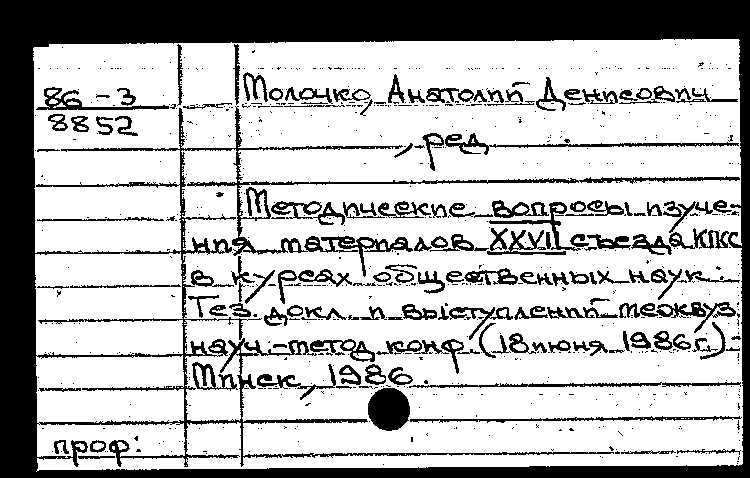 86-3
8852
Молочко, Анатолий Денисович
, ред.
Методические вопросы изуче-
ния материалов XXVII съезда КПСС
в курсах общественных наук:
Тез. докл. и выступлений межвуз.
науч.-метод. конф. (18 июня 1986 г.)-
Минск, 1986.
проф: